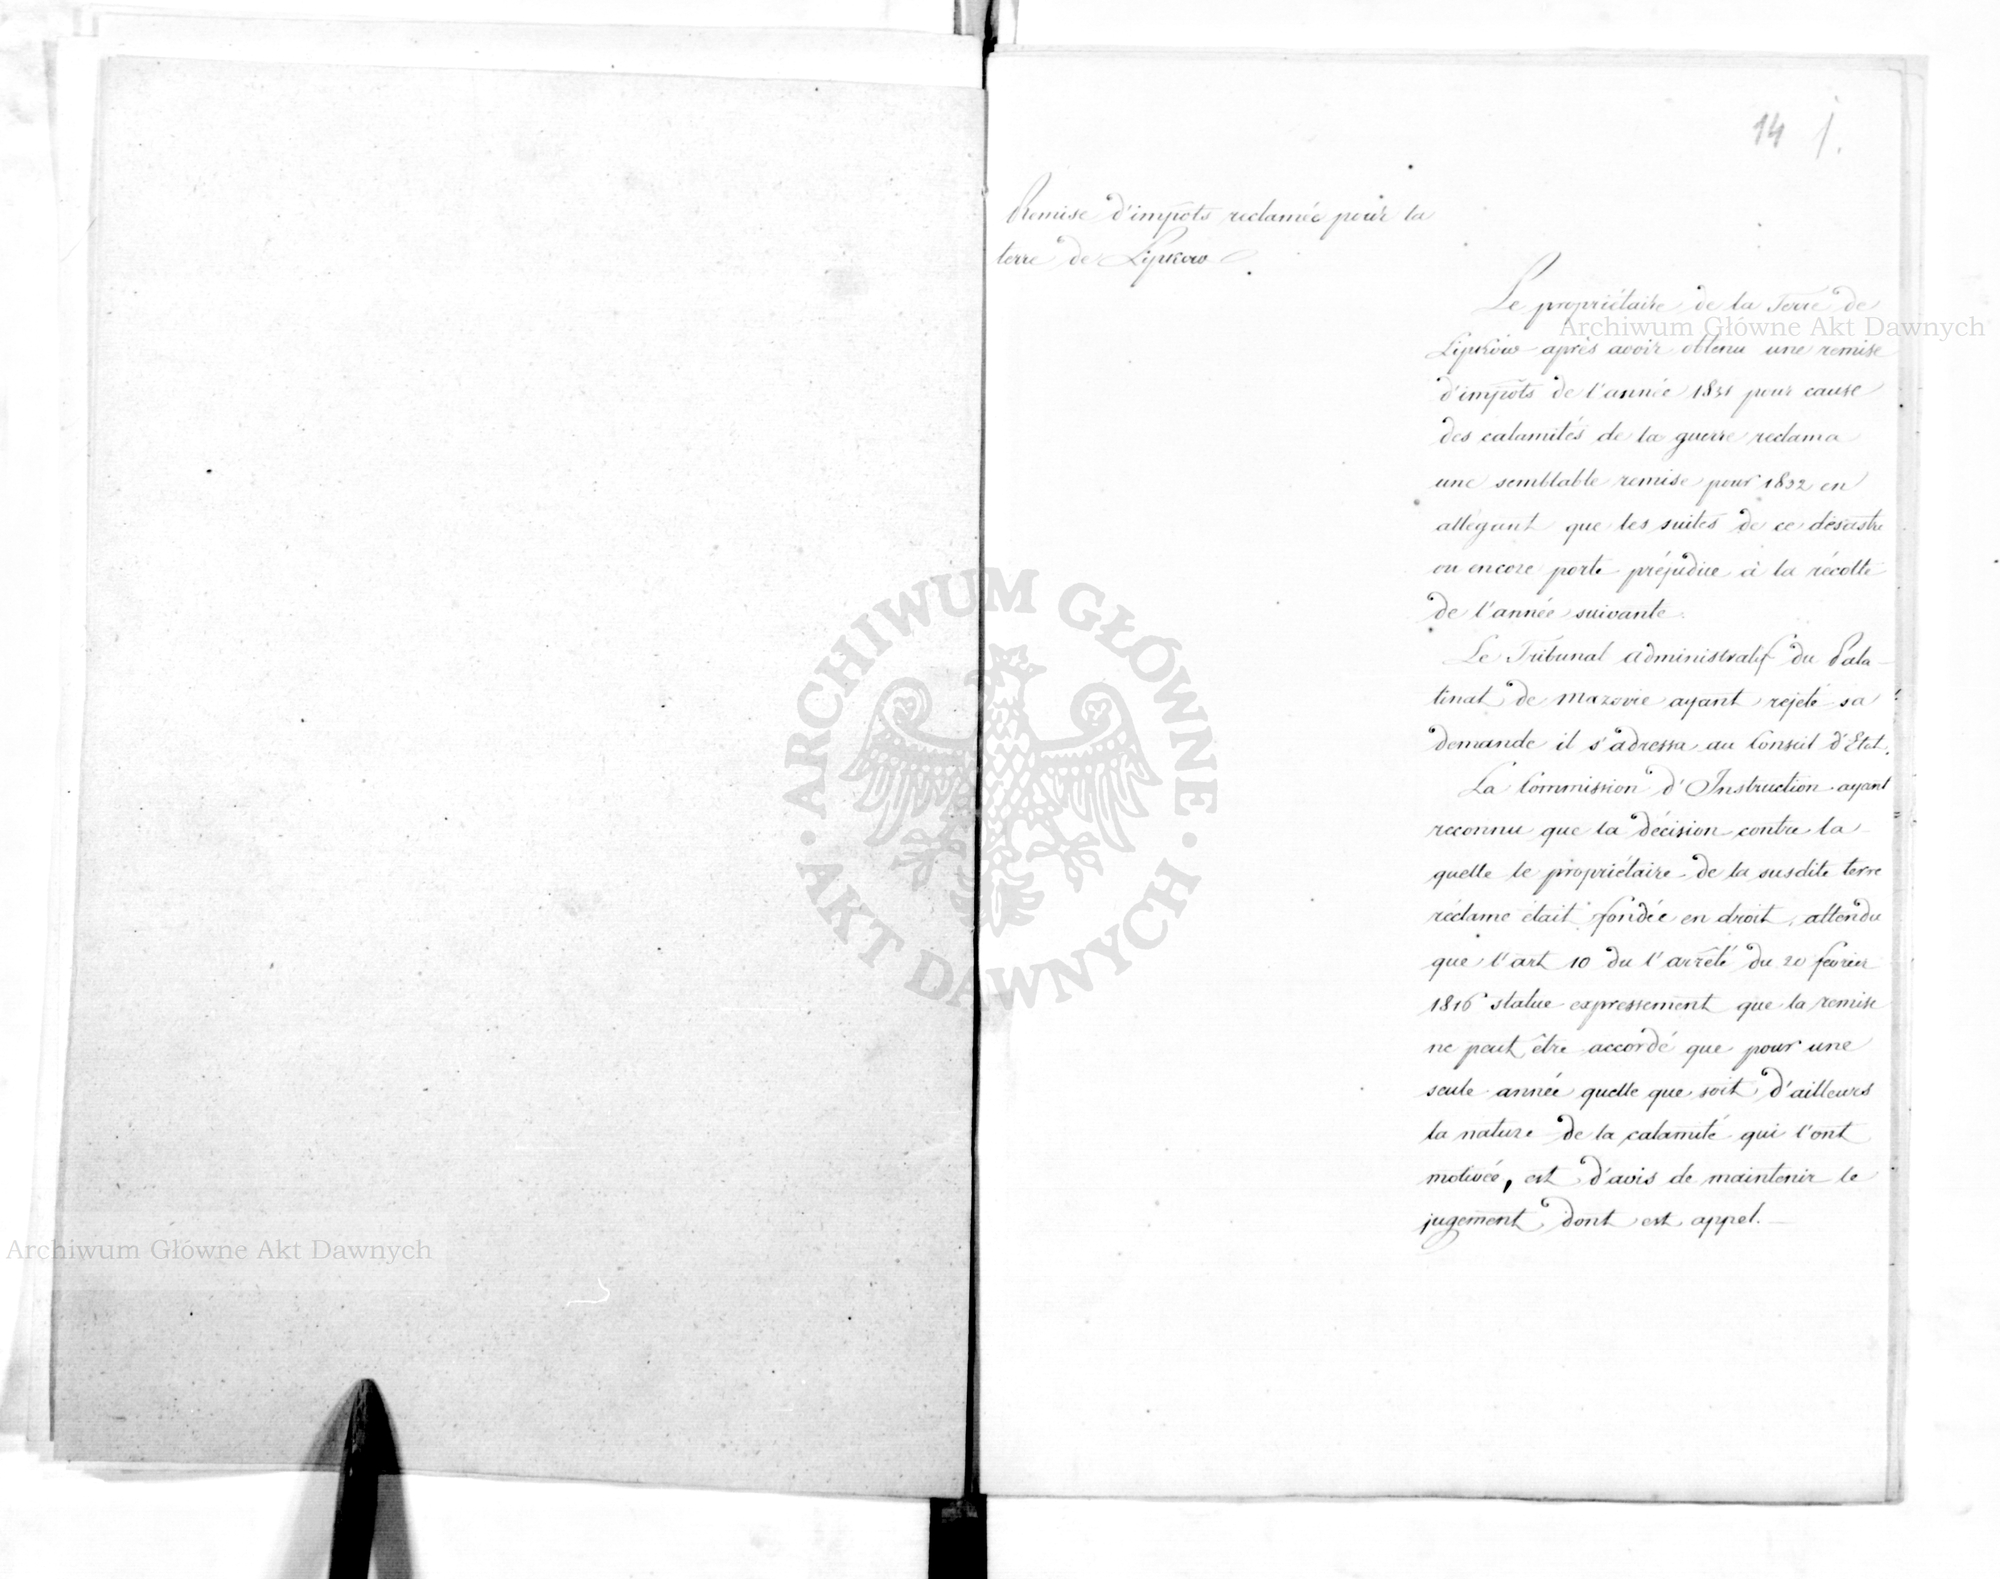 14 1.
Remise d'impots reclamée pour la
terre de Lipkow
Le propriétaire de la Terre de
Lipków après avoir obtenu une remise
d'impôts de l'année 1831 pour cause
des calamités de la guerre reclama
une semblable remise pour 1832 en
allégant que les suites de ce désastre
ou encore porte préjudice à la récolte
de l'année suivante.
Le Tribunal administratif du Pala-
tinat de Mazovie ayant rejeté sa
demande il s'adressa au Conseil d'Etat.
La Commission d'Instruction ayant
reconnu que la décision contre la-
quelle le propriétaire de la susdite terre
réclame était fondée en droit, attendu
que l'art 10 du l'arrêté du 20 fevrier
1816 statue expressement que la remise
ne peut être accordé que pour une
seule année quelle que soit d'ailleurs
la nature de la calamité qui l'ont
motivée, est d'avis de maintenir le
jugement dont est appel.
Archiwum Główne Akt Dawnych
ARCHIWUM GŁÓWNE
AKT DAWNYCH
Archiwum Główne Akt Dawnych